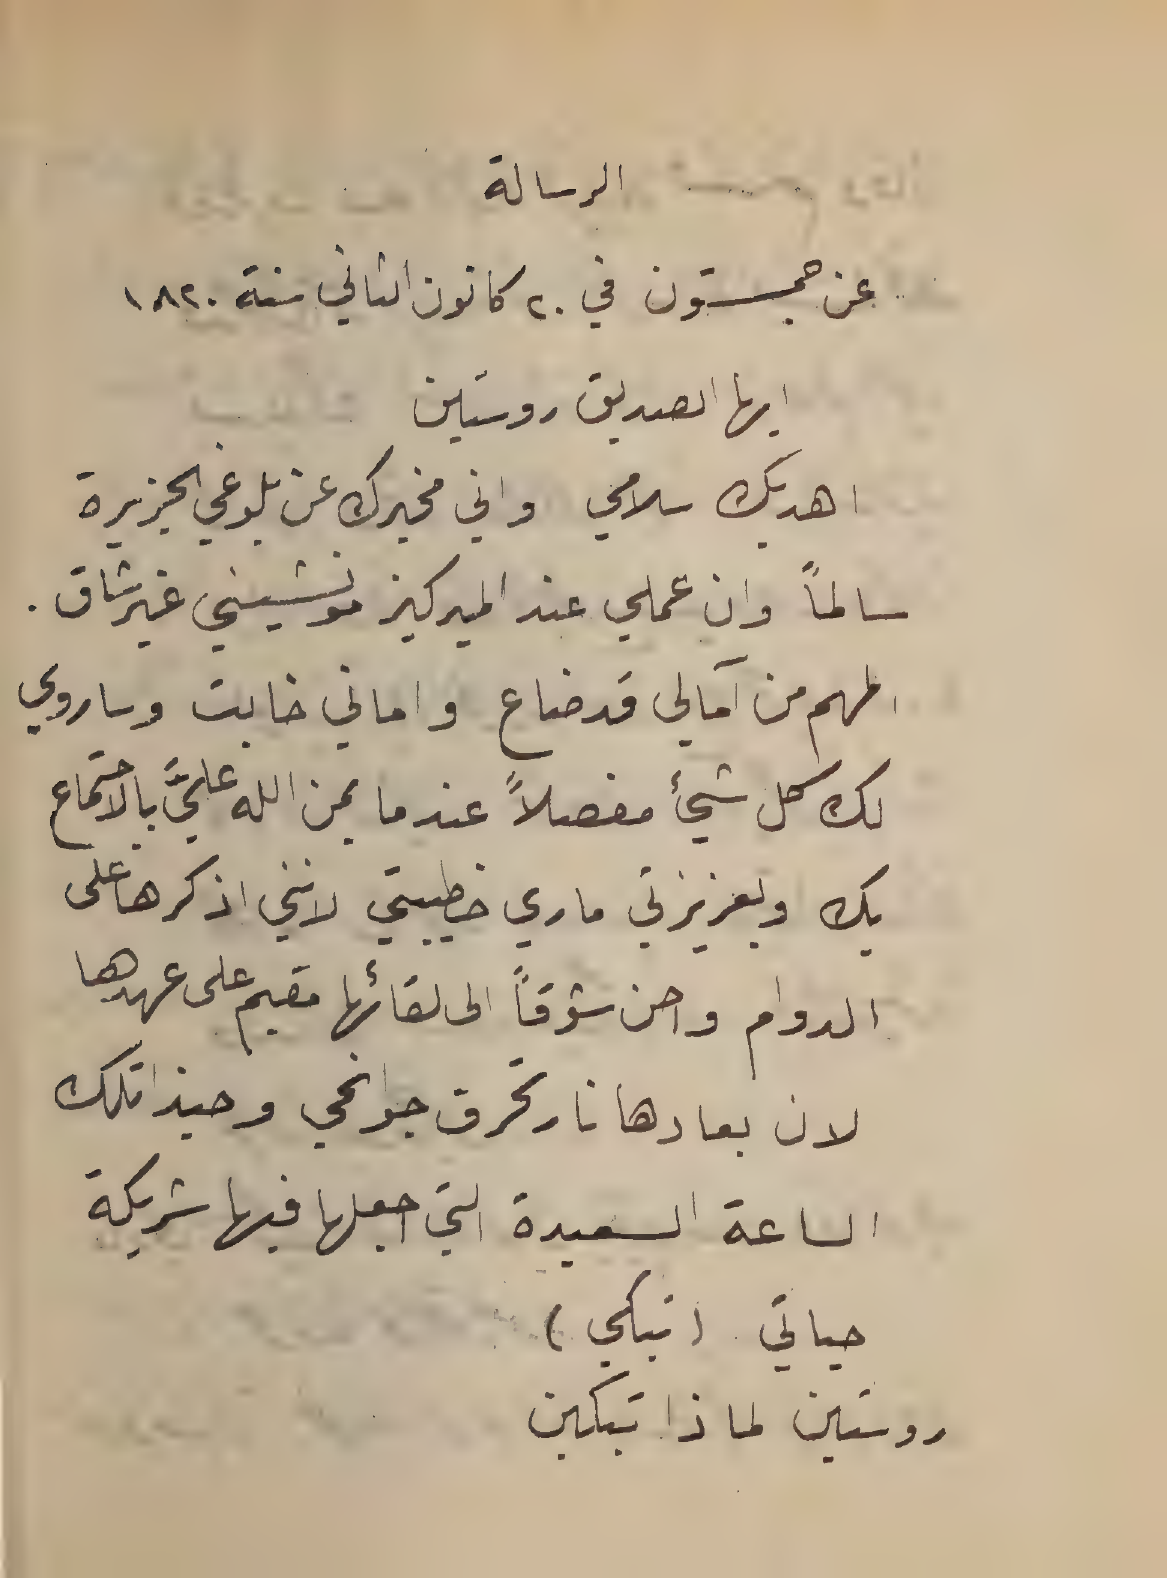 الرسالة
عن جمستون في ٢٠ كانون الثاني سنة ١٨٢٠
ايها الصديق روستين
اهديك سلامي واني مخبرك عن بلوغي الجزيرة
سالماً وان عملي عند الميركيز مونشيني غير شاق .
المهم من آمالي قد ضاع واماني خابت وساروي
لك كل شيئ مفصلاً عندما يمن الله عليَّ بالاجتماع
بك وبعزيزتي ماري خطيبتي لانني اذكرها على
الدوام واحن شوقاً الى لقائها مقيم على عهدها
لان بعادها نار تحرق جوانحي وحبذا تلك
الساعة السعيدة التي اجعلها فيها شريكة
حياتي (تبكي)
روستين لماذا تبكين